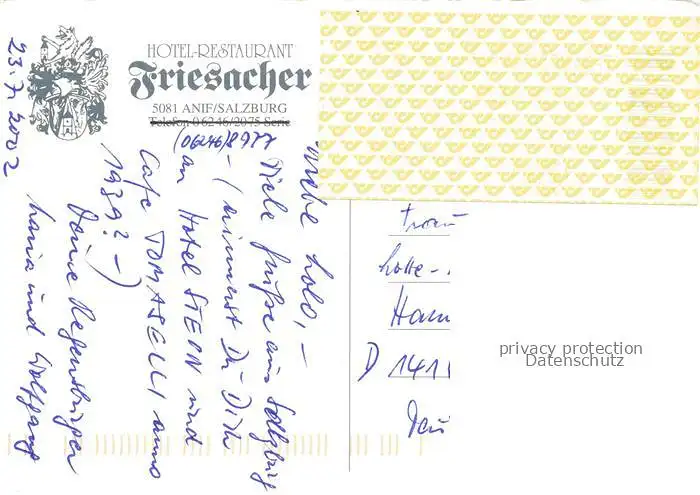 HOTEL-RESTAURANT
Friesacher
5081 ANIF/SALZBURG
Telefon 06246/2075 Serie
(06246) 8977
23.7.2002
Liebe Lolo, –
Viele Grüße aus Salzburg
– (erinnerst Du Dich
an Hotel STERN und
Cafe TOMASELLI anno
1939? –)
Deine Regensburger
und Wolfgang
Frau
Lotte-
Ham
D 141
privacy protection
Datenschutz